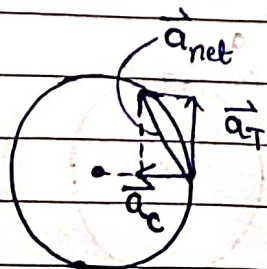 a⃗net
a⃗T
a⃗c